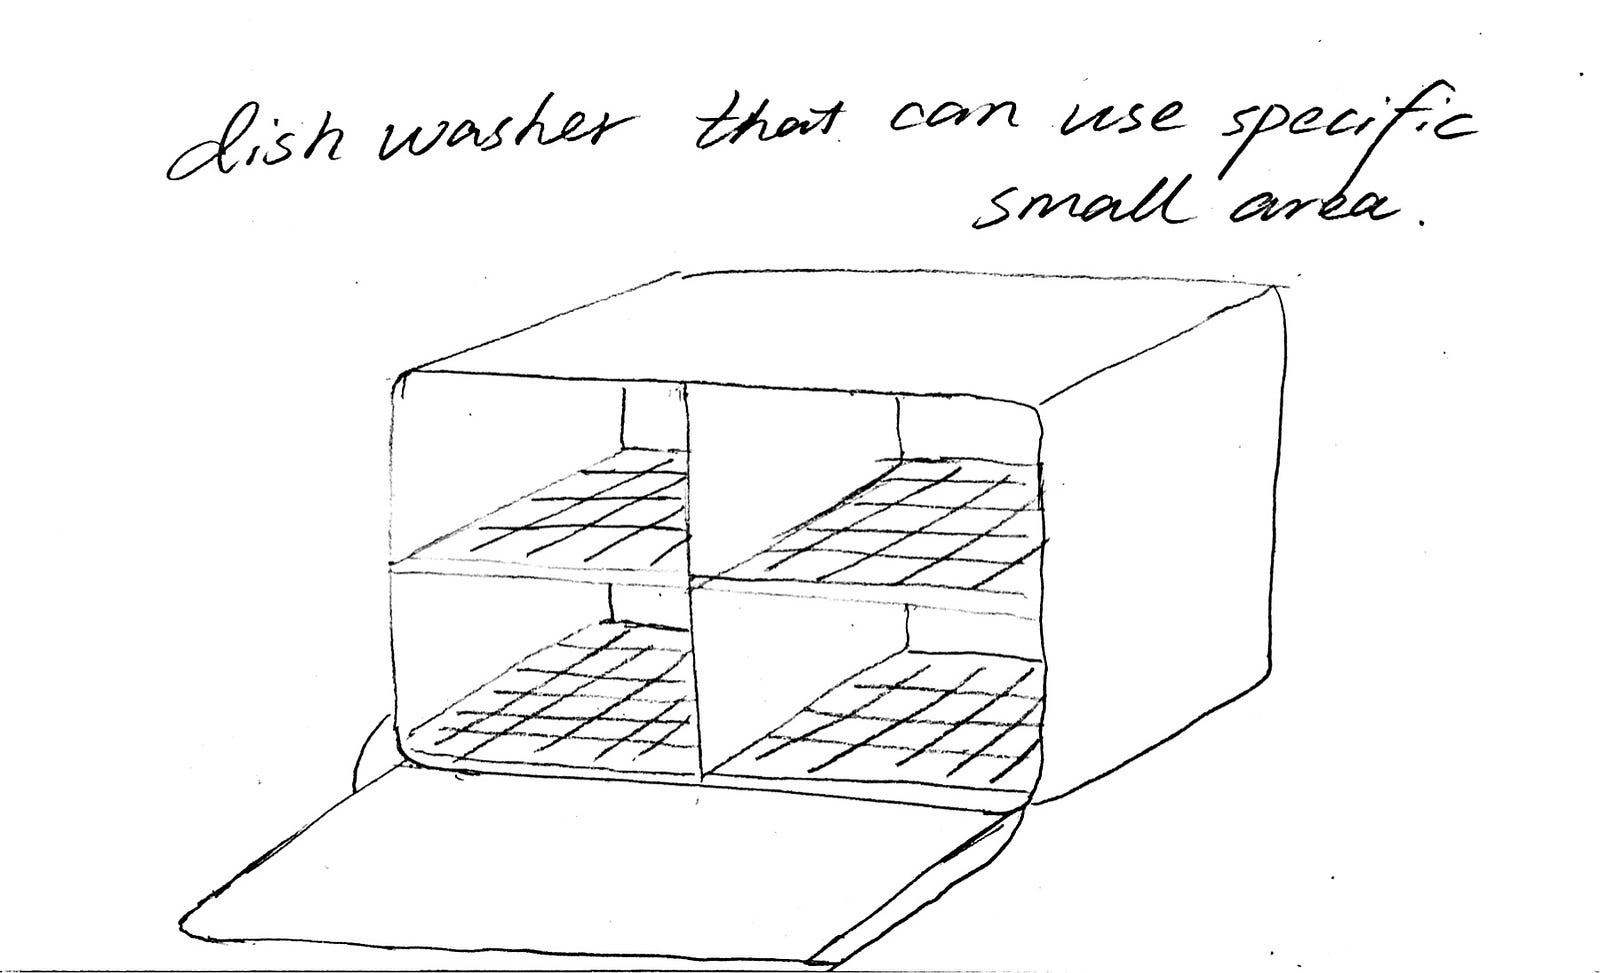 dish washer that can use specific
small area.